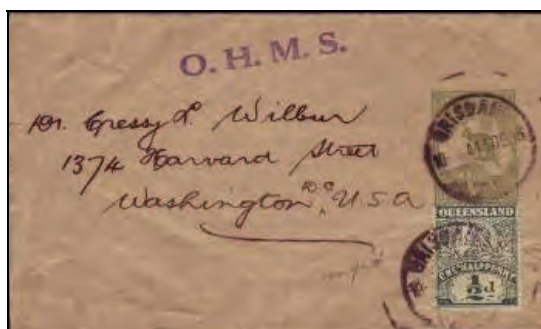 O. H. M. S.
Dr. Cressy L. Wilbur
1374 Harvard Street
Washington, D.C. U S A
BRISBANE
QUEENSLAND
½d
BRISBANE